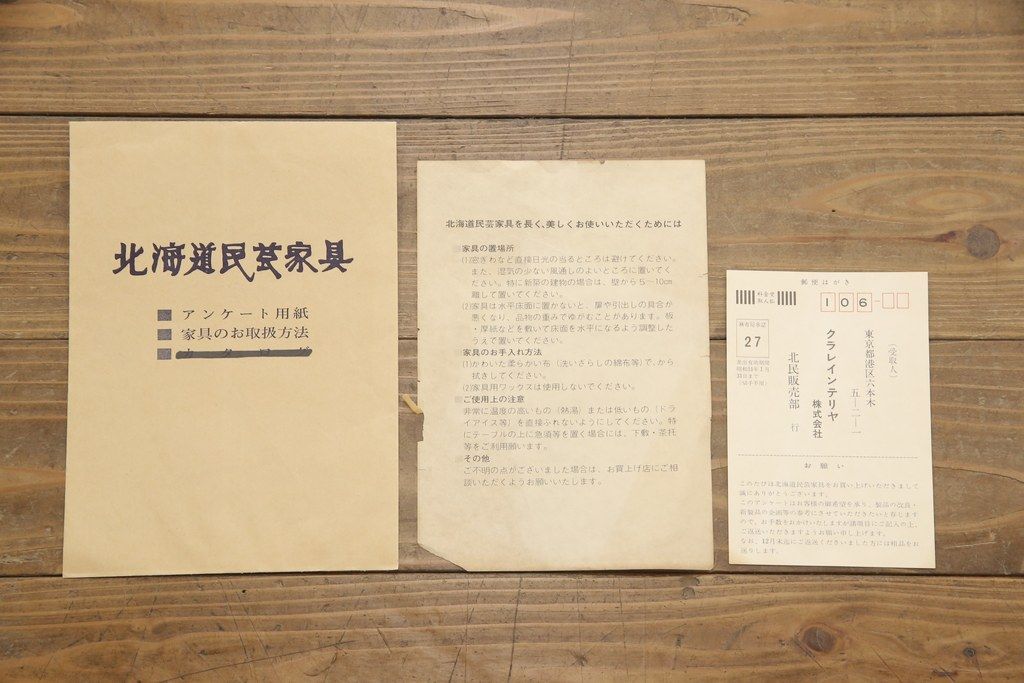 北海道民芸家具
アンケート用紙
家具のお取扱方法
カタログ
北海道民芸家具を長く、美しくお使いいただくためには
家具の置場所
(1)窓きわなど直接日光の当るところは避けてください。
また、湿気の少ない風通しのよいところに置いてく
ださい。特に新築の建物の場合は、壁から5～10cm
離して置いてください。
(2)家具は水平床面に置かないと、扉や引出しの具合が
悪くなり、品物の重みでゆがむことがあります。板
・厚紙などを敷いて床面を水平になるよう調整した
うえで置いてください。
家具のお手入れ方法
(1)かわいた柔らかい布(洗いざらしの綿布等)で、から
拭きしてください。
(2)家具用ワックスは使用しないでください。
ご使用上の注意
非常に温度の高いもの(熱湯)または低いもの(ドラ
イアイス等)を直接ふれないようにしてください。特
にテーブルの上に急須等を置く場合には、下敷・茶托
等をご利用願います。
その他
ご不明の点がございました場合は、お買上げ店にご相
談いただくようお願いいたします。
郵便はがき
料金受
取人払
106-
麻布局承認
27
差出有効期間
(受取人)
東京都港区六本木
五―二―一
クラレインテリヤ
株式会社
北民販売部 行
お願い
このたびは北海道民芸家具をお買い上げいただきまして
誠にありがとうございます。
このアンケートはお客様の御希望を承り、製品の改良・
新製品の企画等の参考にさせていただきたいと存じます
ので、お手数をおかけいたしますが諸項目にご記入の上、
ご返送いただきますようお願い申し上げます。
なお、12月末迄にご返送くださいました方には粗品をお
送りします。